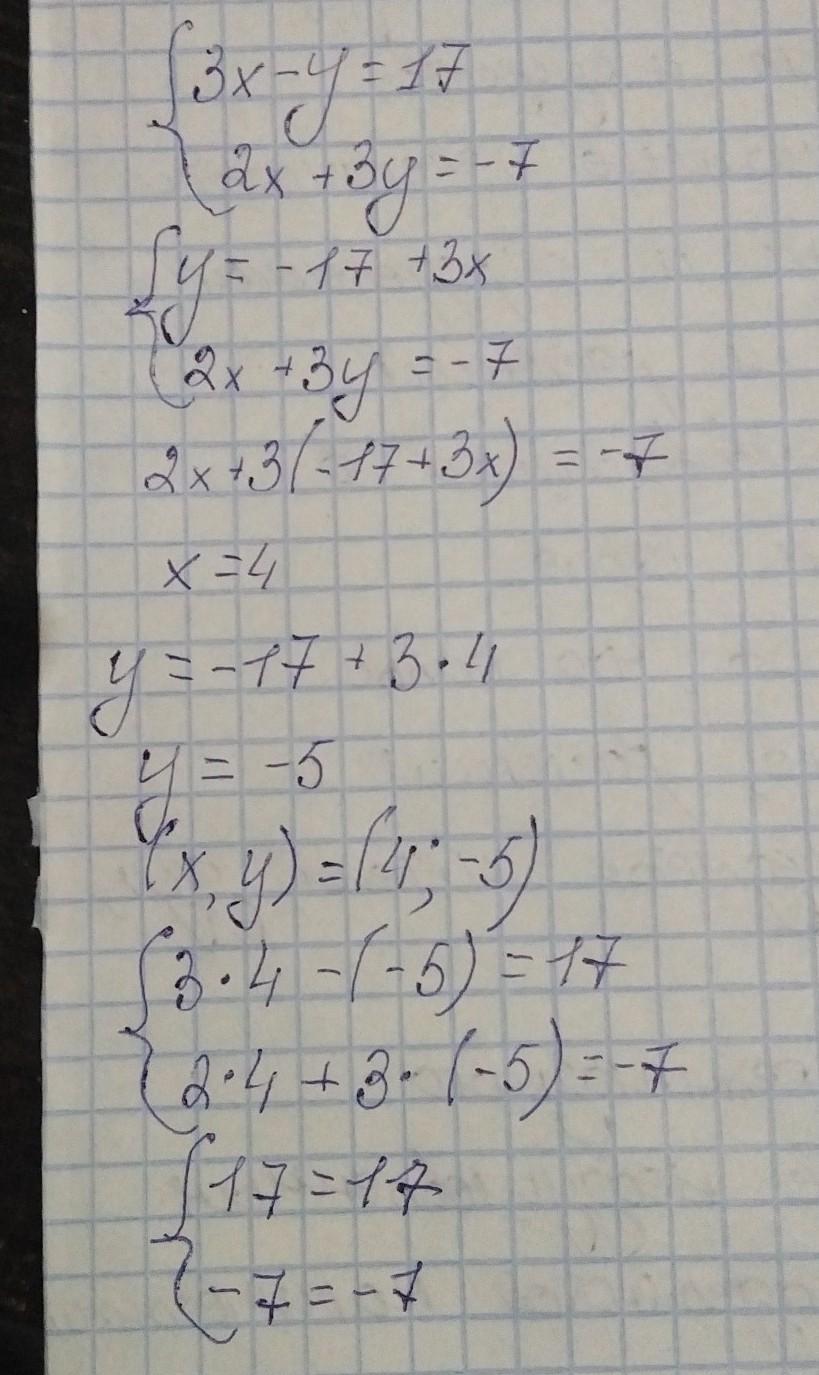 {3x-y=17
2x+3y=-7
{y=-17+3x
2x+3y=-7
2x+3(-17+3x)=-7
x=4
y=-17+3·4
y=-5
(x,y)=(4;-5)
{3·4-(-5)=17
2·4+3·(-5)=-7
{17=17
-7=-7